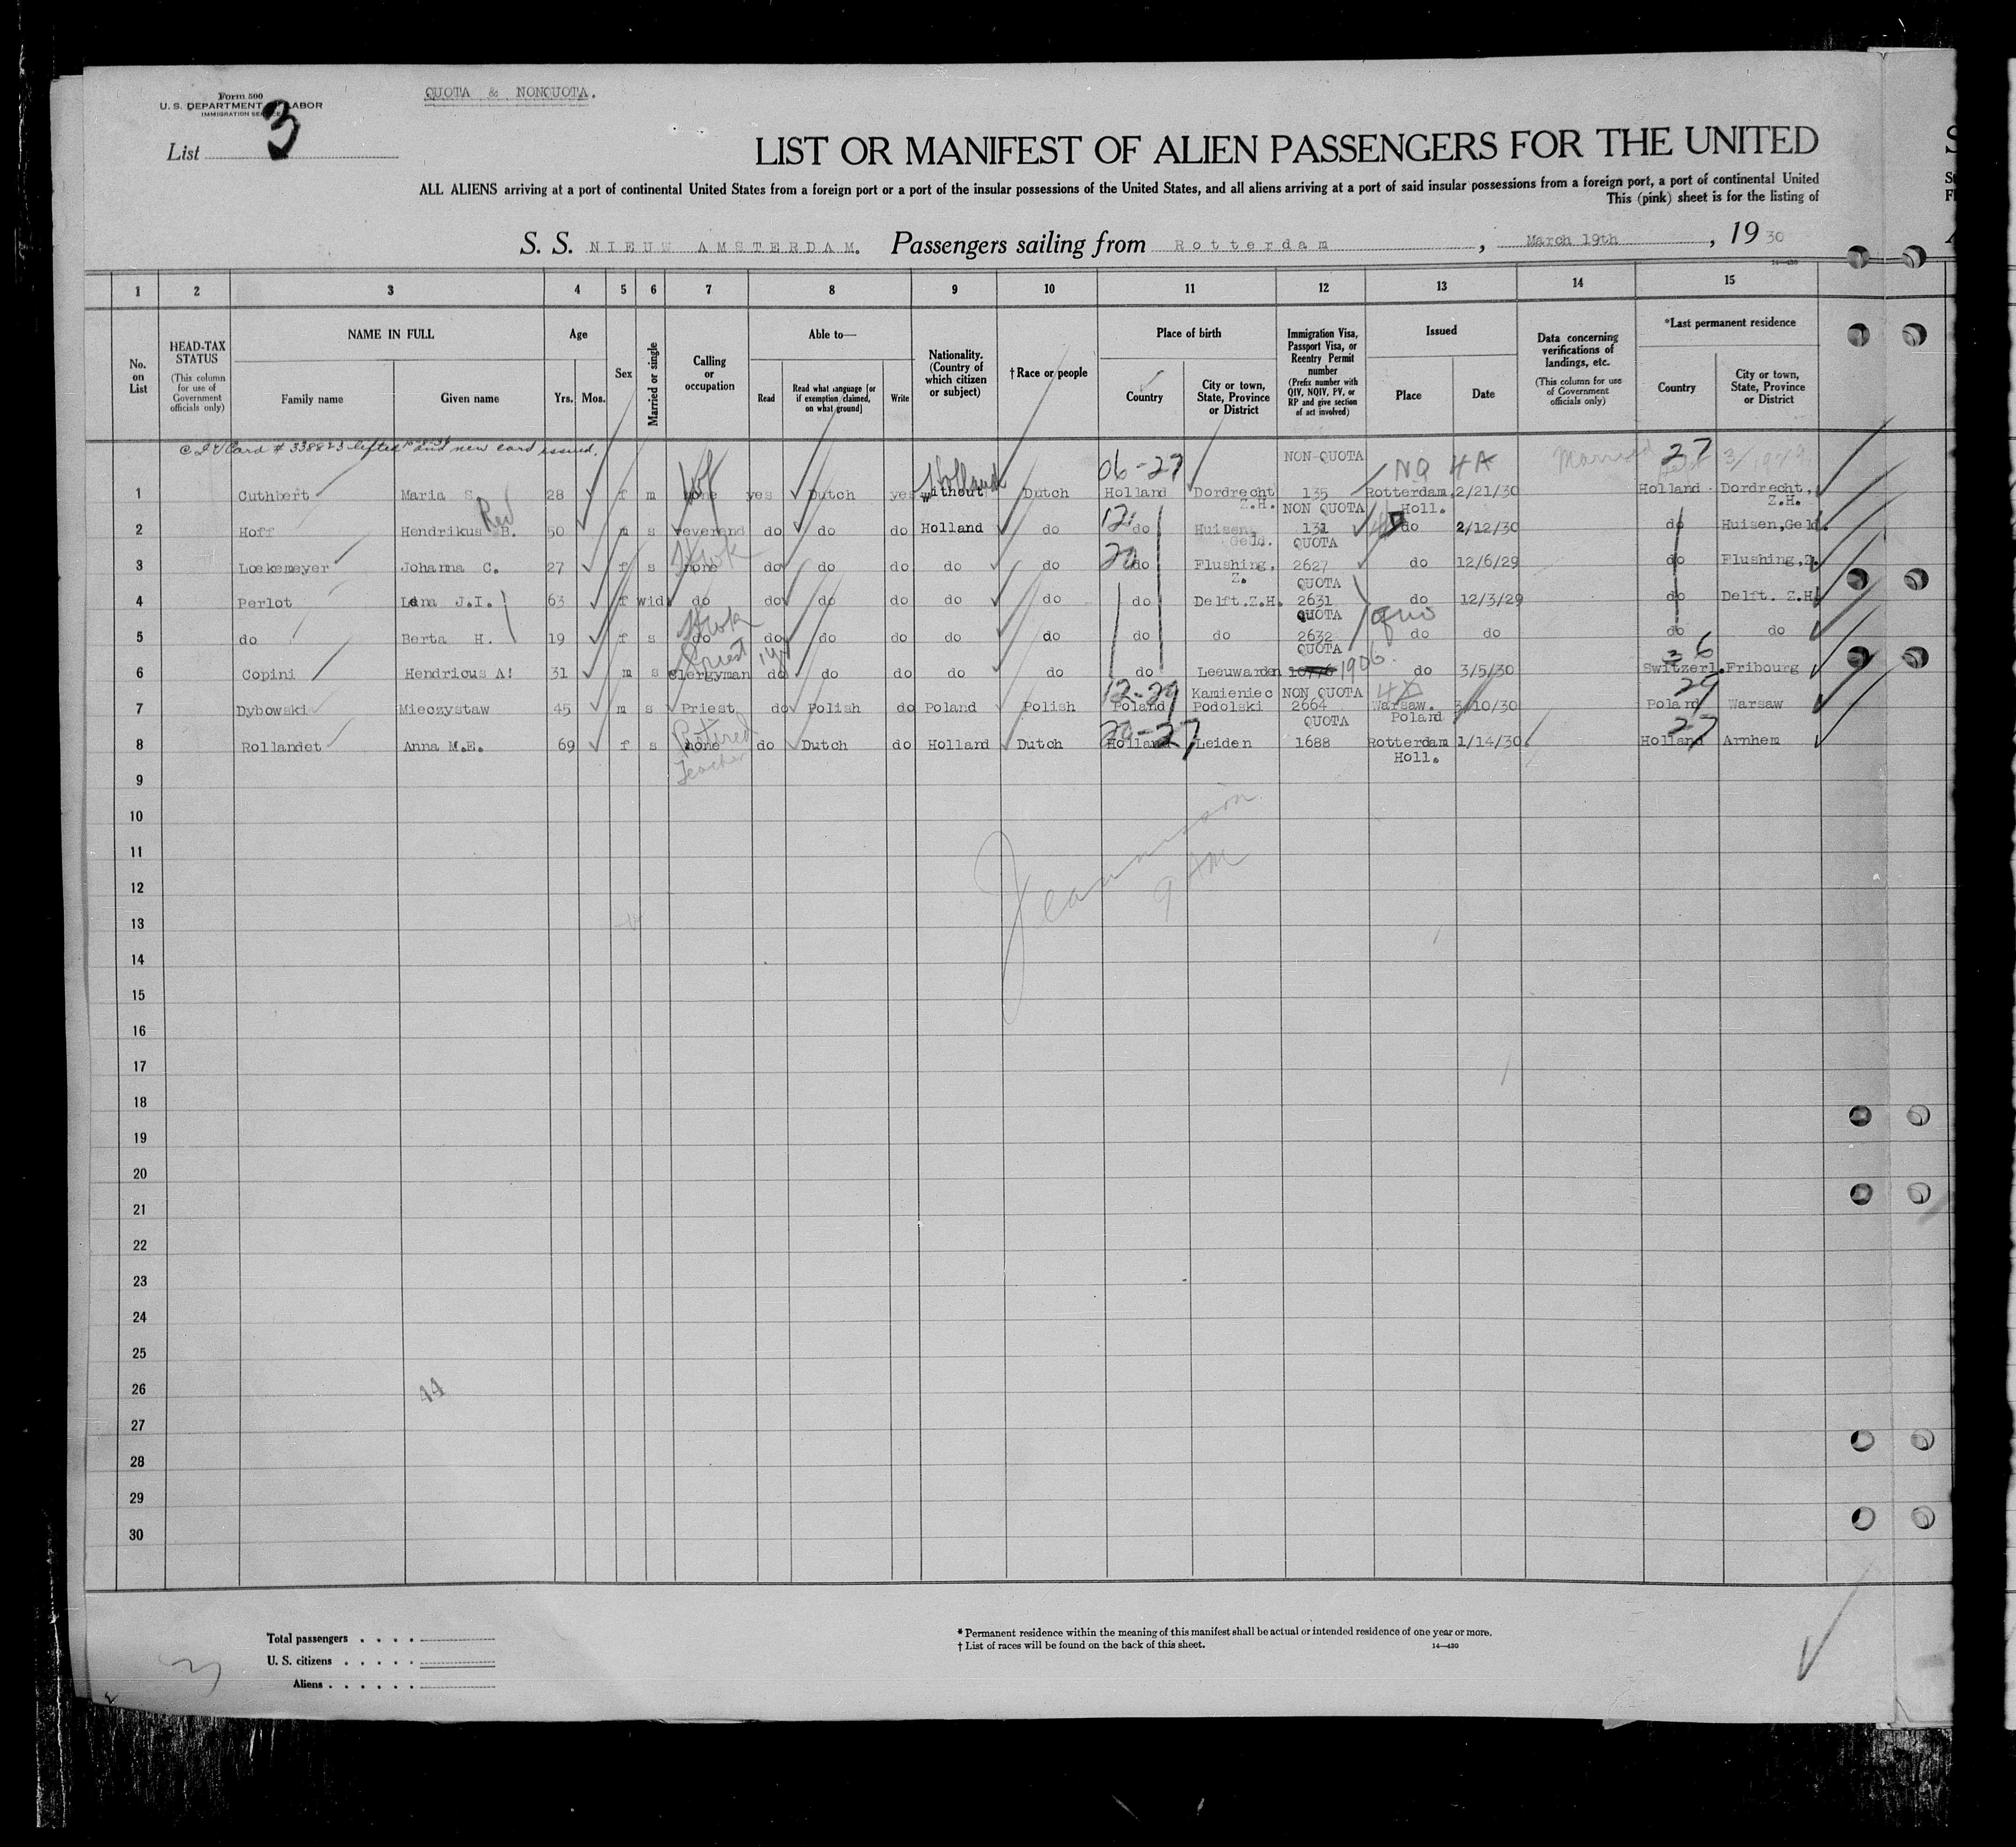 Form 500
U. S. DEPARTMENT LABOR
IMMIGRATION SERVICE
QUOTA & NONQUOTA.
List 3
LIST OR MANIFEST OF ALIEN PASSENGERS FOR THE UNITED
ALL ALIENS arriving at a port of continental United States from a foreign port or a port of the insular possessions of the United States, and all aliens arriving at a port of said insular possessions from a foreign port, a port of continental United
This (pink) sheet is for the listing of
S. S. NIEUW AMSTERDAM. Passengers sailing from Rotterdam, March 19th, 1930
14—430
1 2 3 4 5 6 7 8 9 10 11 12 13 14 15
No. on List
HEAD-TAX STATUS (This column for use of Government officials only)
NAME IN FULL
Family name Given name
Age
Yrs. Mos.
Sex
Married or single
Calling or occupation
Able to—
Read Read what language [or if exemption claimed, on what ground] Write
Nationality. (Country of which citizen or subject)
†Race or people
Place of birth
Country City or town, State, Province or District
Immigration Visa, Passport Visa, or Reentry Permit number (Prefix number with QIV, NQIV, PV, or RP and give section of act involved)
Issued
Place Date
Data concerning verifications of landings, etc. (This column for use of Government officials only)
*Last permanent residence
Country City or town, State, Province or District
Card # 338823 lifted and new card issued.
Holland 06-27 NON-QUOTA NQ 4A Married 27 3/1929
1 Cuthbert Maria S. 28 f m none yes Dutch yes without Dutch Holland Dordrecht Z.H. 135 Rotterdam Holl. 2/21/30 Holland Dordrecht, Z.H.
Rev 12 NON QUOTA 4D
2 Hoff Hendrikus B. 50 m s reverend do do do Holland do do Huisen Geld. 131 do 2/12/30 do Huisen,Geld.
20 QUOTA
3 Loekemeyer Johanna C. 27 f s none do do do do do do Flushing. Z. 2627 do 12/6/29 do Flushing,Z.
QUOTA
4 Perlot Lena J.I. 63 f wid do do do do do do do Delft.Z.H. 2631 do 12/3/29 do Delft. Z.H.
QUOTA
5 do Berta H. 19 f s do do do do do do do do 2632 do do do do
Priest QUOTA 1906 36
6 Copini Hendricus A. 31 m s clergyman do do do do do do Leeuwarden do 3/5/30 Switzerl. Fribourg
12-29 NON QUOTA 4D 29
7 Dybowski Mieczystaw 45 m s Priest do Polish do Poland Polish Poland Kamieniec Podolski 2664 Warsaw. Poland 3/10/30 Poland Warsaw
Retired Teacher 20-27 QUOTA 27
8 Rollandet Anna M.E. 69 f s none do Dutch do Holland Dutch Holland Leiden 1688 Rotterdam Holl. 1/14/30. Holland Arnhem
9
10
11
9 AM
12
13
14
15
16
17
18
19
20
21
22
23
24
25
26
44
27
28
29
30
Total passengers
U. S. citizens
Aliens
* Permanent residence within the meaning of this manifest shall be actual or intended residence of one year or more.
† List of races will be found on the back of this sheet.
14—430